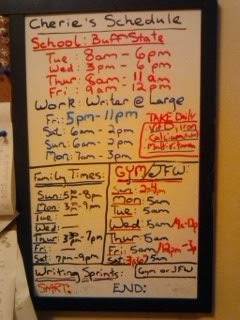 Cherie's Schedule
School: Buff State
Tue 8am - 6pm
Wed: 3pm - 6pm
Thur 8am - 11am
Fri 9am - 12pm
Work: Writer @ Large
Fri: 5pm - 11pm
Sat: 6am - 2pm
Sun: 6am - 2pm
Mon: 7am - 3pm
TAKE Daily
Vit D, Iron
Calcium
Family Times:
Sun: 5pm - 8pm
Mon: 3pm - 9pm
Tue:
Wed:
Thur 3pm - 7pm
Fri:
Sat: 7pm - 9pm
GYM/JFW
Sun: 2-4pm
Mon: 5am
Tue: 5am
Wed: 5am/
Thur 5am
Fri: 5am/12pm-3p
Sat: 5am
Writing Sprints:
Gym or JFW
START:
END: